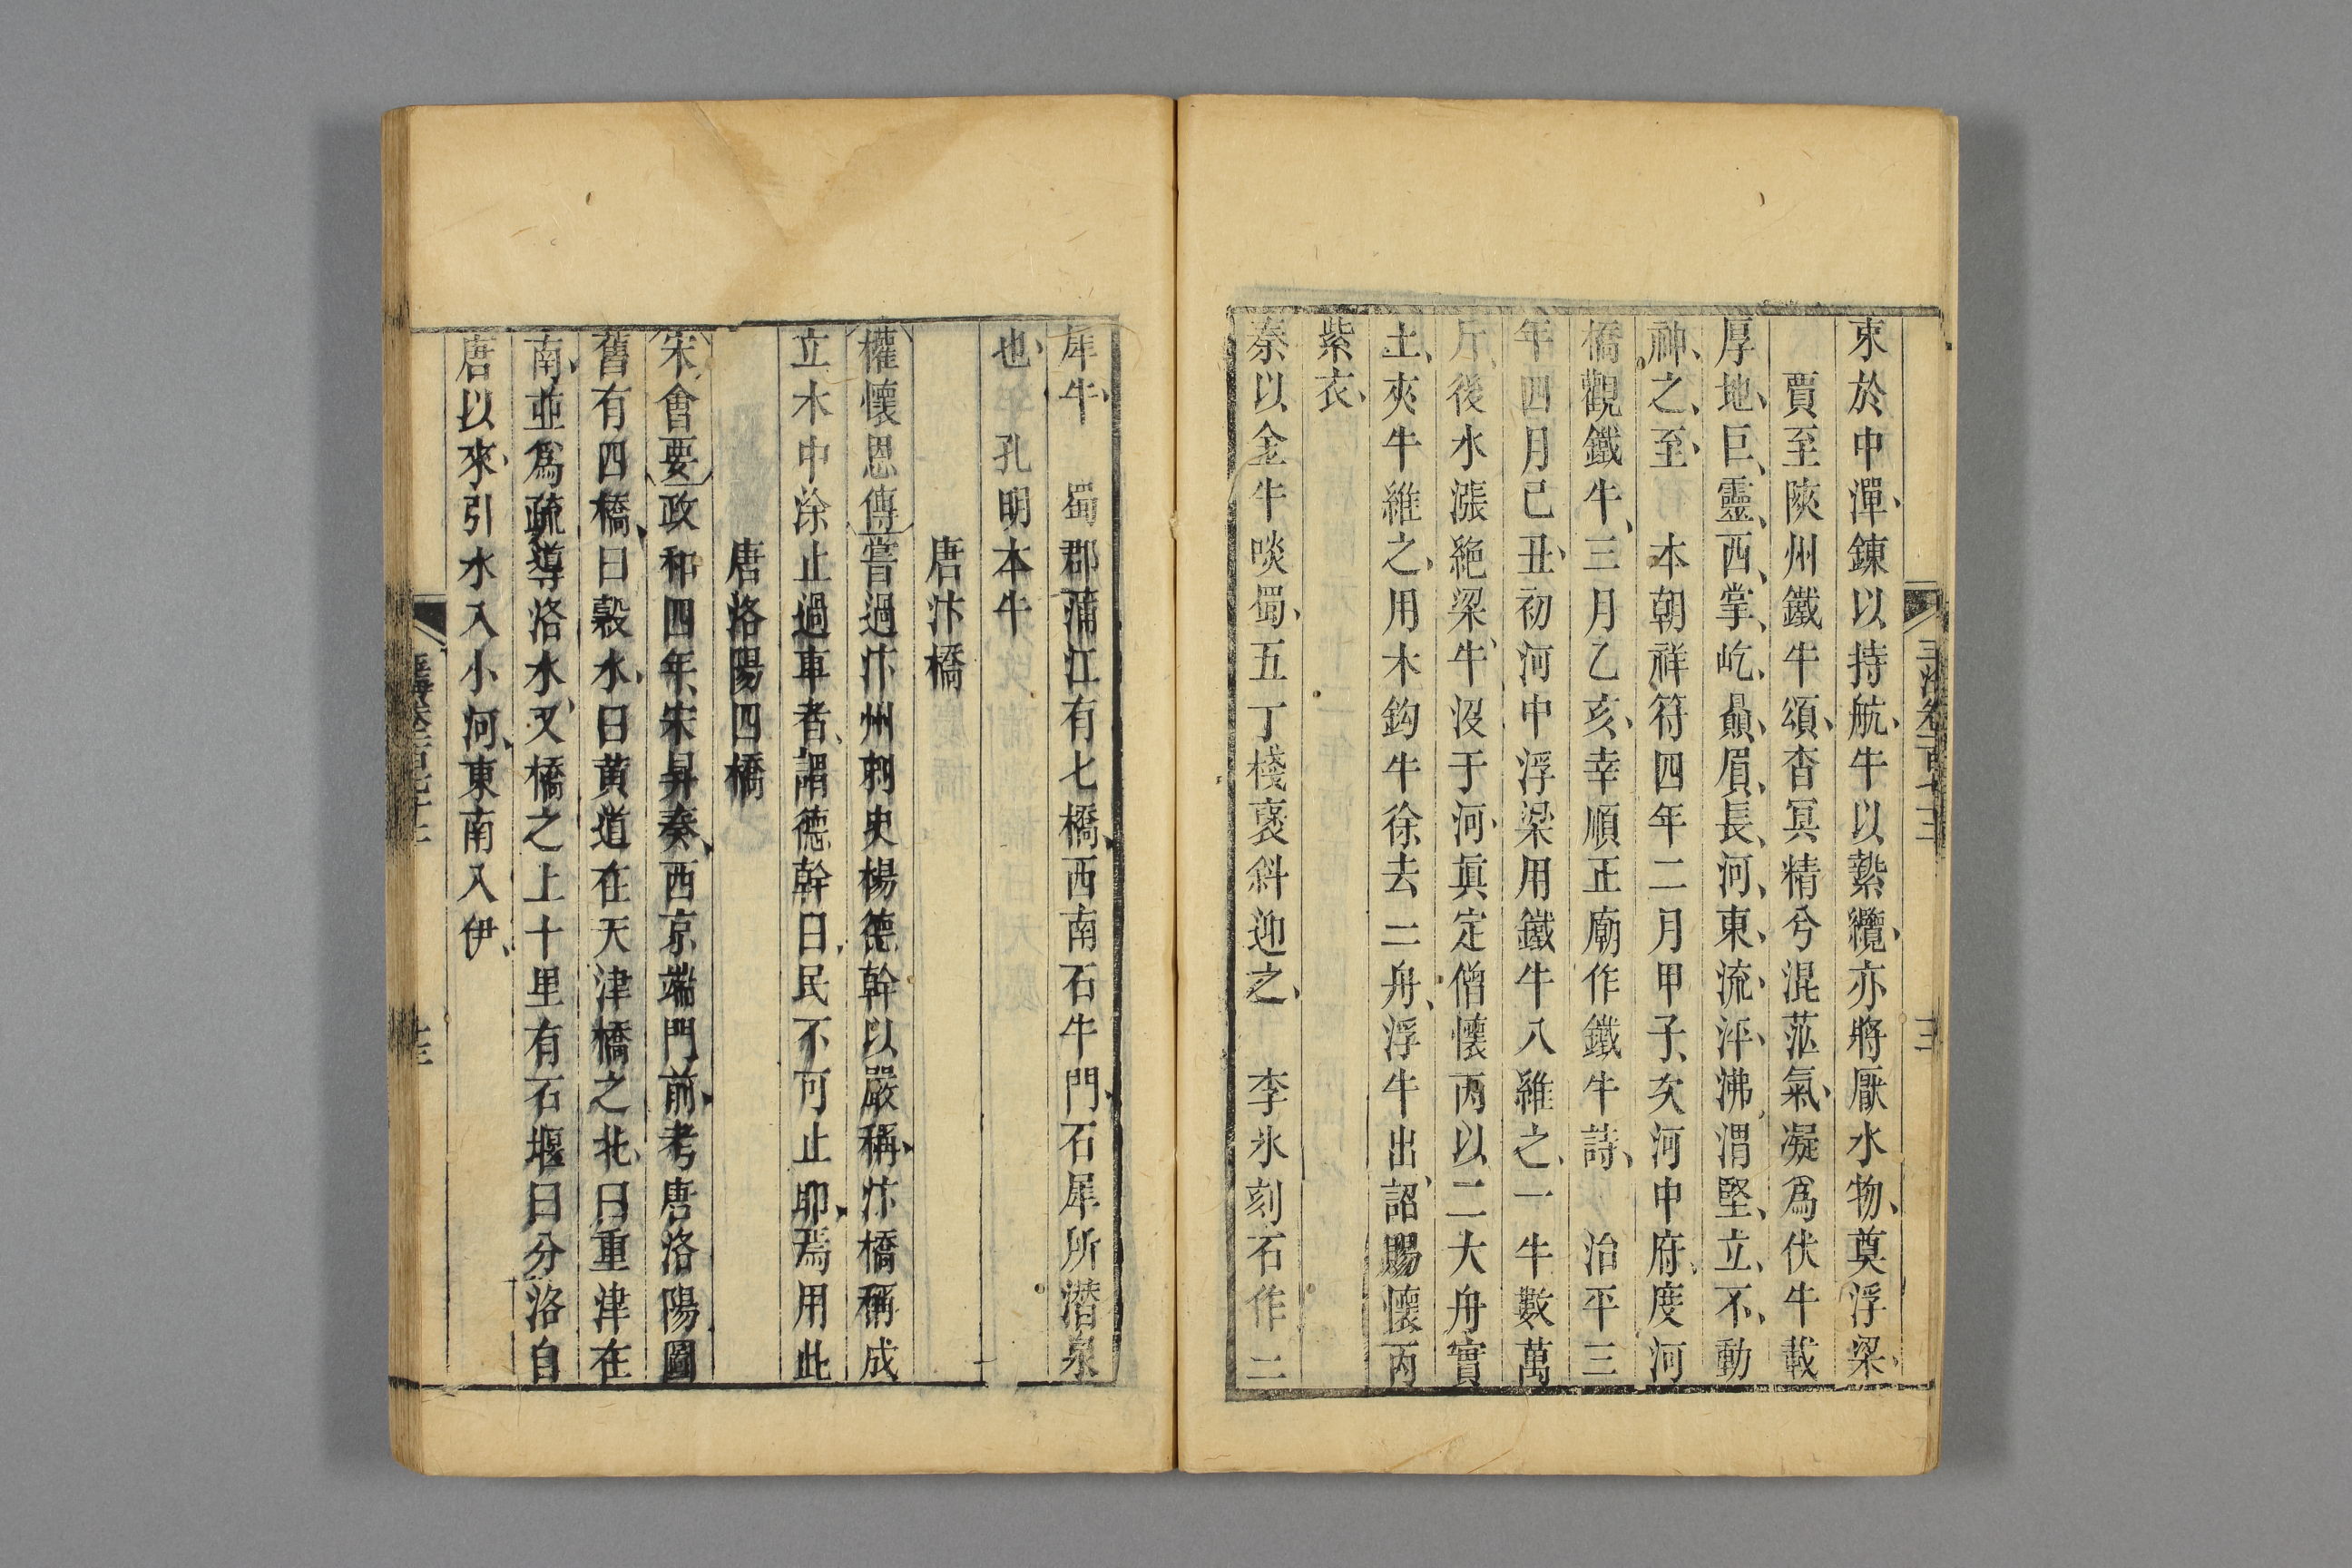 束於中潬鍊以持航牛以縶纜亦將厭水物奠浮梁
賈至陝州鐵牛頌杳冥精兮混茫氣凝爲伏牛載
厚地巨靈西掌屹贔眉長河東流泙沸渭堅立不動
神之至 本朝祥符四年二月甲子次河中府度河
橋觀鐵牛三月乙亥幸順正廟作鐵牛詩 治平三
年四月己丑初河中浮梁用鐵牛八維之一牛數萬
斤後水漲絶梁牛沒于河眞定僧懷丙以二大舟實
土夾牛維之用木鈎牛徐去二舟浮牛出詔賜懷丙
紫衣
秦以金牛啖蜀五丁棧褒斜迎之 李氷刻石作二
犀牛 蜀郡蒲江有七橋西南石牛門石犀所潛泉
也 孔明本牛
唐汴橋
權懷恩傳嘗過汴州刺史楊德幹以嚴稱汴橋稱成
立木中涂止過車者謂德幹曰民不可止耶焉用此
唐洛陽四橋
宋會要政和四年宋昇奏西京端門前考唐洛陽圖
舊有四橋曰穀水曰黃道在天津橋之北曰重津在
南並爲疏導洛水又橋之上十里有石堰曰分洛自
唐以來引水入小河東南入伊